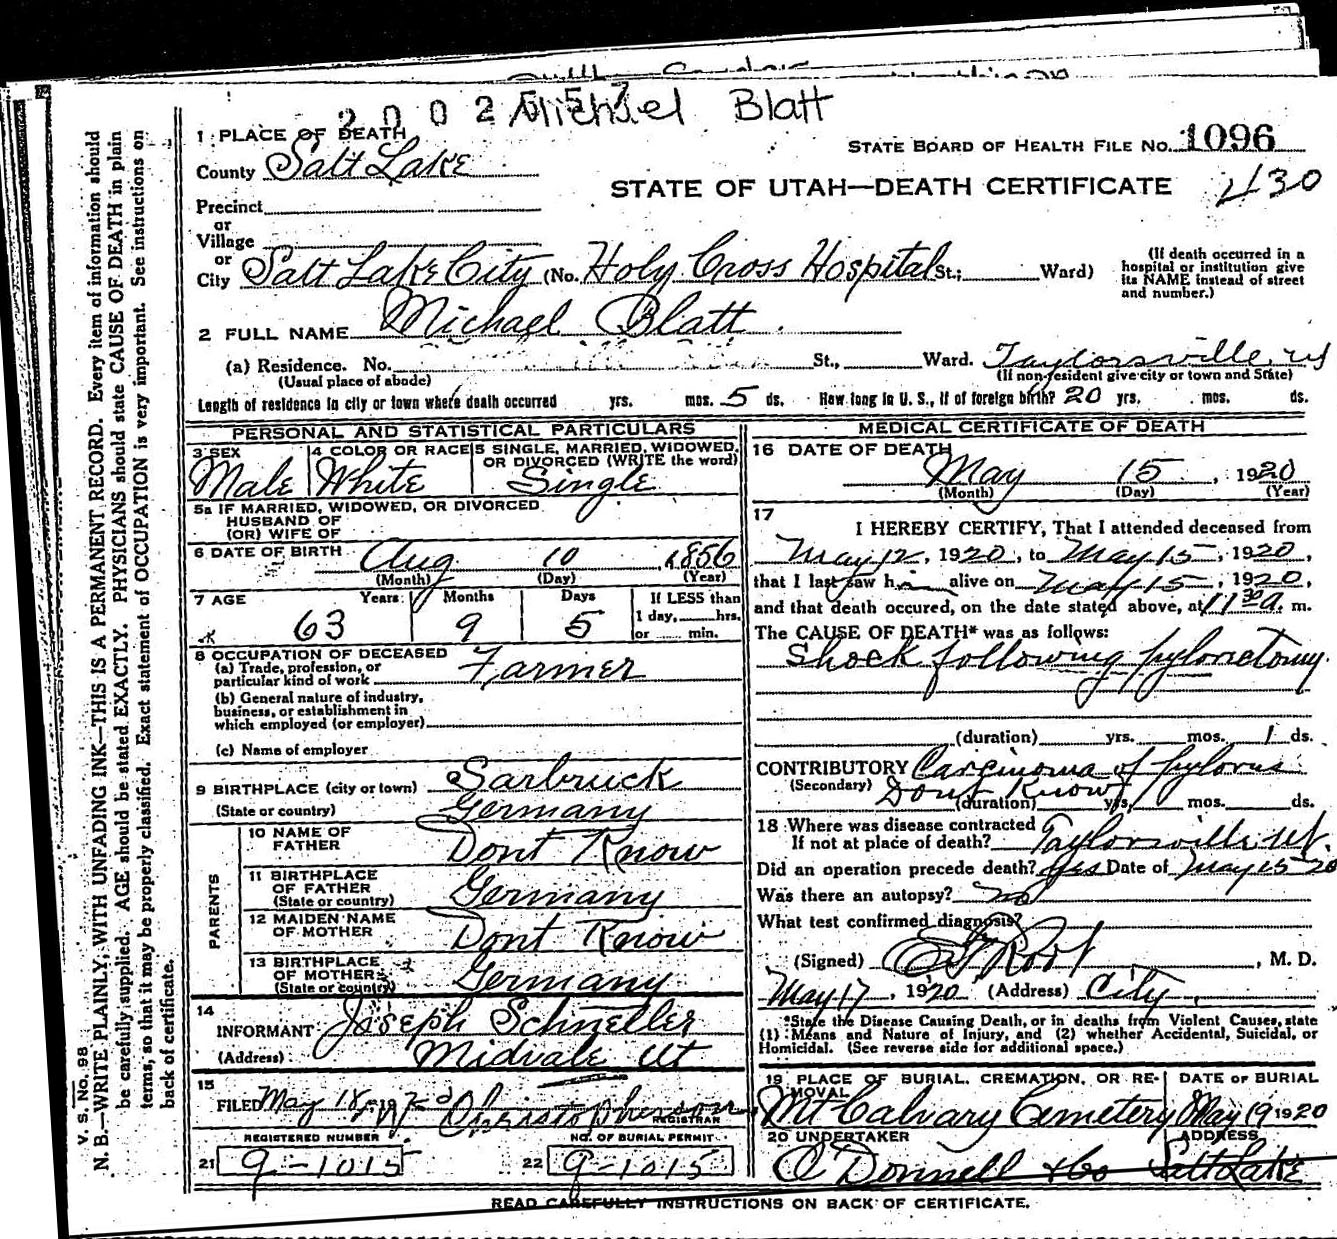 2 0 0 2 5 5 7 Michael Blatt
1 PLACE OF DEATH
STATE BOARD OF HEALTH FILE NO. 1096
County Salt Lake
STATE OF UTAH—DEATH CERTIFICATE 430
Precinct
or
Village
or
City Salt Lake City (No. Holy Cross Hospital St.; Ward)
(If death occurred in a
hospital or institution give
its NAME instead of street
and number.)
2 FULL NAME Michael Blatt
(a) Residence. No. St., Ward. Taylorsville, Ut
(Usual place of abode) (If non-resident give city or town and State)
Length of residence in city or town where death occurred yrs. mos. 5 ds. How long in U. S., if of foreign birth? 20 yrs. mos. ds.
PERSONAL AND STATISTICAL PARTICULARS
3 SEX Male
4 COLOR OR RACE White
5 SINGLE, MARRIED, WIDOWED,
OR DIVORCED (WRITE the word)
Single
5a IF MARRIED, WIDOWED, OR DIVORCED
HUSBAND OF
(OR) WIFE OF
6 DATE OF BIRTH Aug 10, 1856
(Month) (Day) (Year)
7 AGE Years Months Days If LESS than
1 day, hrs.
63 9 5 or min.
8 OCCUPATION OF DECEASED
(a) Trade, profession, or
particular kind of work Farmer
(b) General nature of industry,
business, or establishment in
which employed (or employer)
(c) Name of employer
9 BIRTHPLACE (city or town) Sarbruck
(State or country) Germany
PARENTS
10 NAME OF
FATHER Dont Know
11 BIRTHPLACE
OF FATHER
(State or country) Germany
12 MAIDEN NAME
OF MOTHER Dont Know
13 BIRTHPLACE
OF MOTHER
(State or country) Germany
14
INFORMANT Joseph Schneller
(Address) Midvale Ut
15
FILED May 18, 192 Christopherson
REGISTRAR
REGISTERED NUMBER NO. OF BURIAL PERMIT
21 9-1015 22 9-1015
MEDICAL CERTIFICATE OF DEATH
16 DATE OF DEATH
May 15, 1920
(Month) (Day) (Year)
17
I HEREBY CERTIFY, That I attended deceased from
May 12, 1920, to May 15, 1920,
that I last saw him alive on May 15, 1920,
and that death occured, on the date stated above, at 11 30 a. m.
The CAUSE OF DEATH* was as follows:
Shock following pylorectomy.
(duration) yrs. mos. 1 ds.
CONTRIBUTORY Carcinoma of pylorus
(Secondary) Dont Know
(duration) yrs. mos. ds.
18 Where was disease contracted
If not at place of death? Taylorsville, Ut.
Did an operation precede death? Yes Date of May 15-20
Was there an autopsy? no
What test confirmed diagnosis?
(Signed) Root, M. D.
May 17, 1920 (Address) City
*State the Disease Causing Death, or in deaths from Violent Causes, state
(1) Means and Nature of Injury, and (2) whether Accidental, Suicidal, or
Homicidal. (See reverse side for additional space.)
19 PLACE OF BURIAL, CREMATION, OR RE-
MOVAL
Mt Calvary Cemetery
DATE OF BURIAL
May 19 1920
20 UNDERTAKER
O'Donnell & Co
ADDRESS
Salt Lake
READ CAREFULLY INSTRUCTIONS ON BACK OF CERTIFICATE.
V. S. No. 98
N. B.—WRITE PLAINLY, WITH UNFADING INK—THIS IS A PERMANENT RECORD. Every item of information should
be carefully supplied. AGE should be stated EXACTLY. PHYSICIANS should state CAUSE OF DEATH in plain
terms, so that it may be properly classified. Exact statement of OCCUPATION is very important. See instructions on
back of certificate.